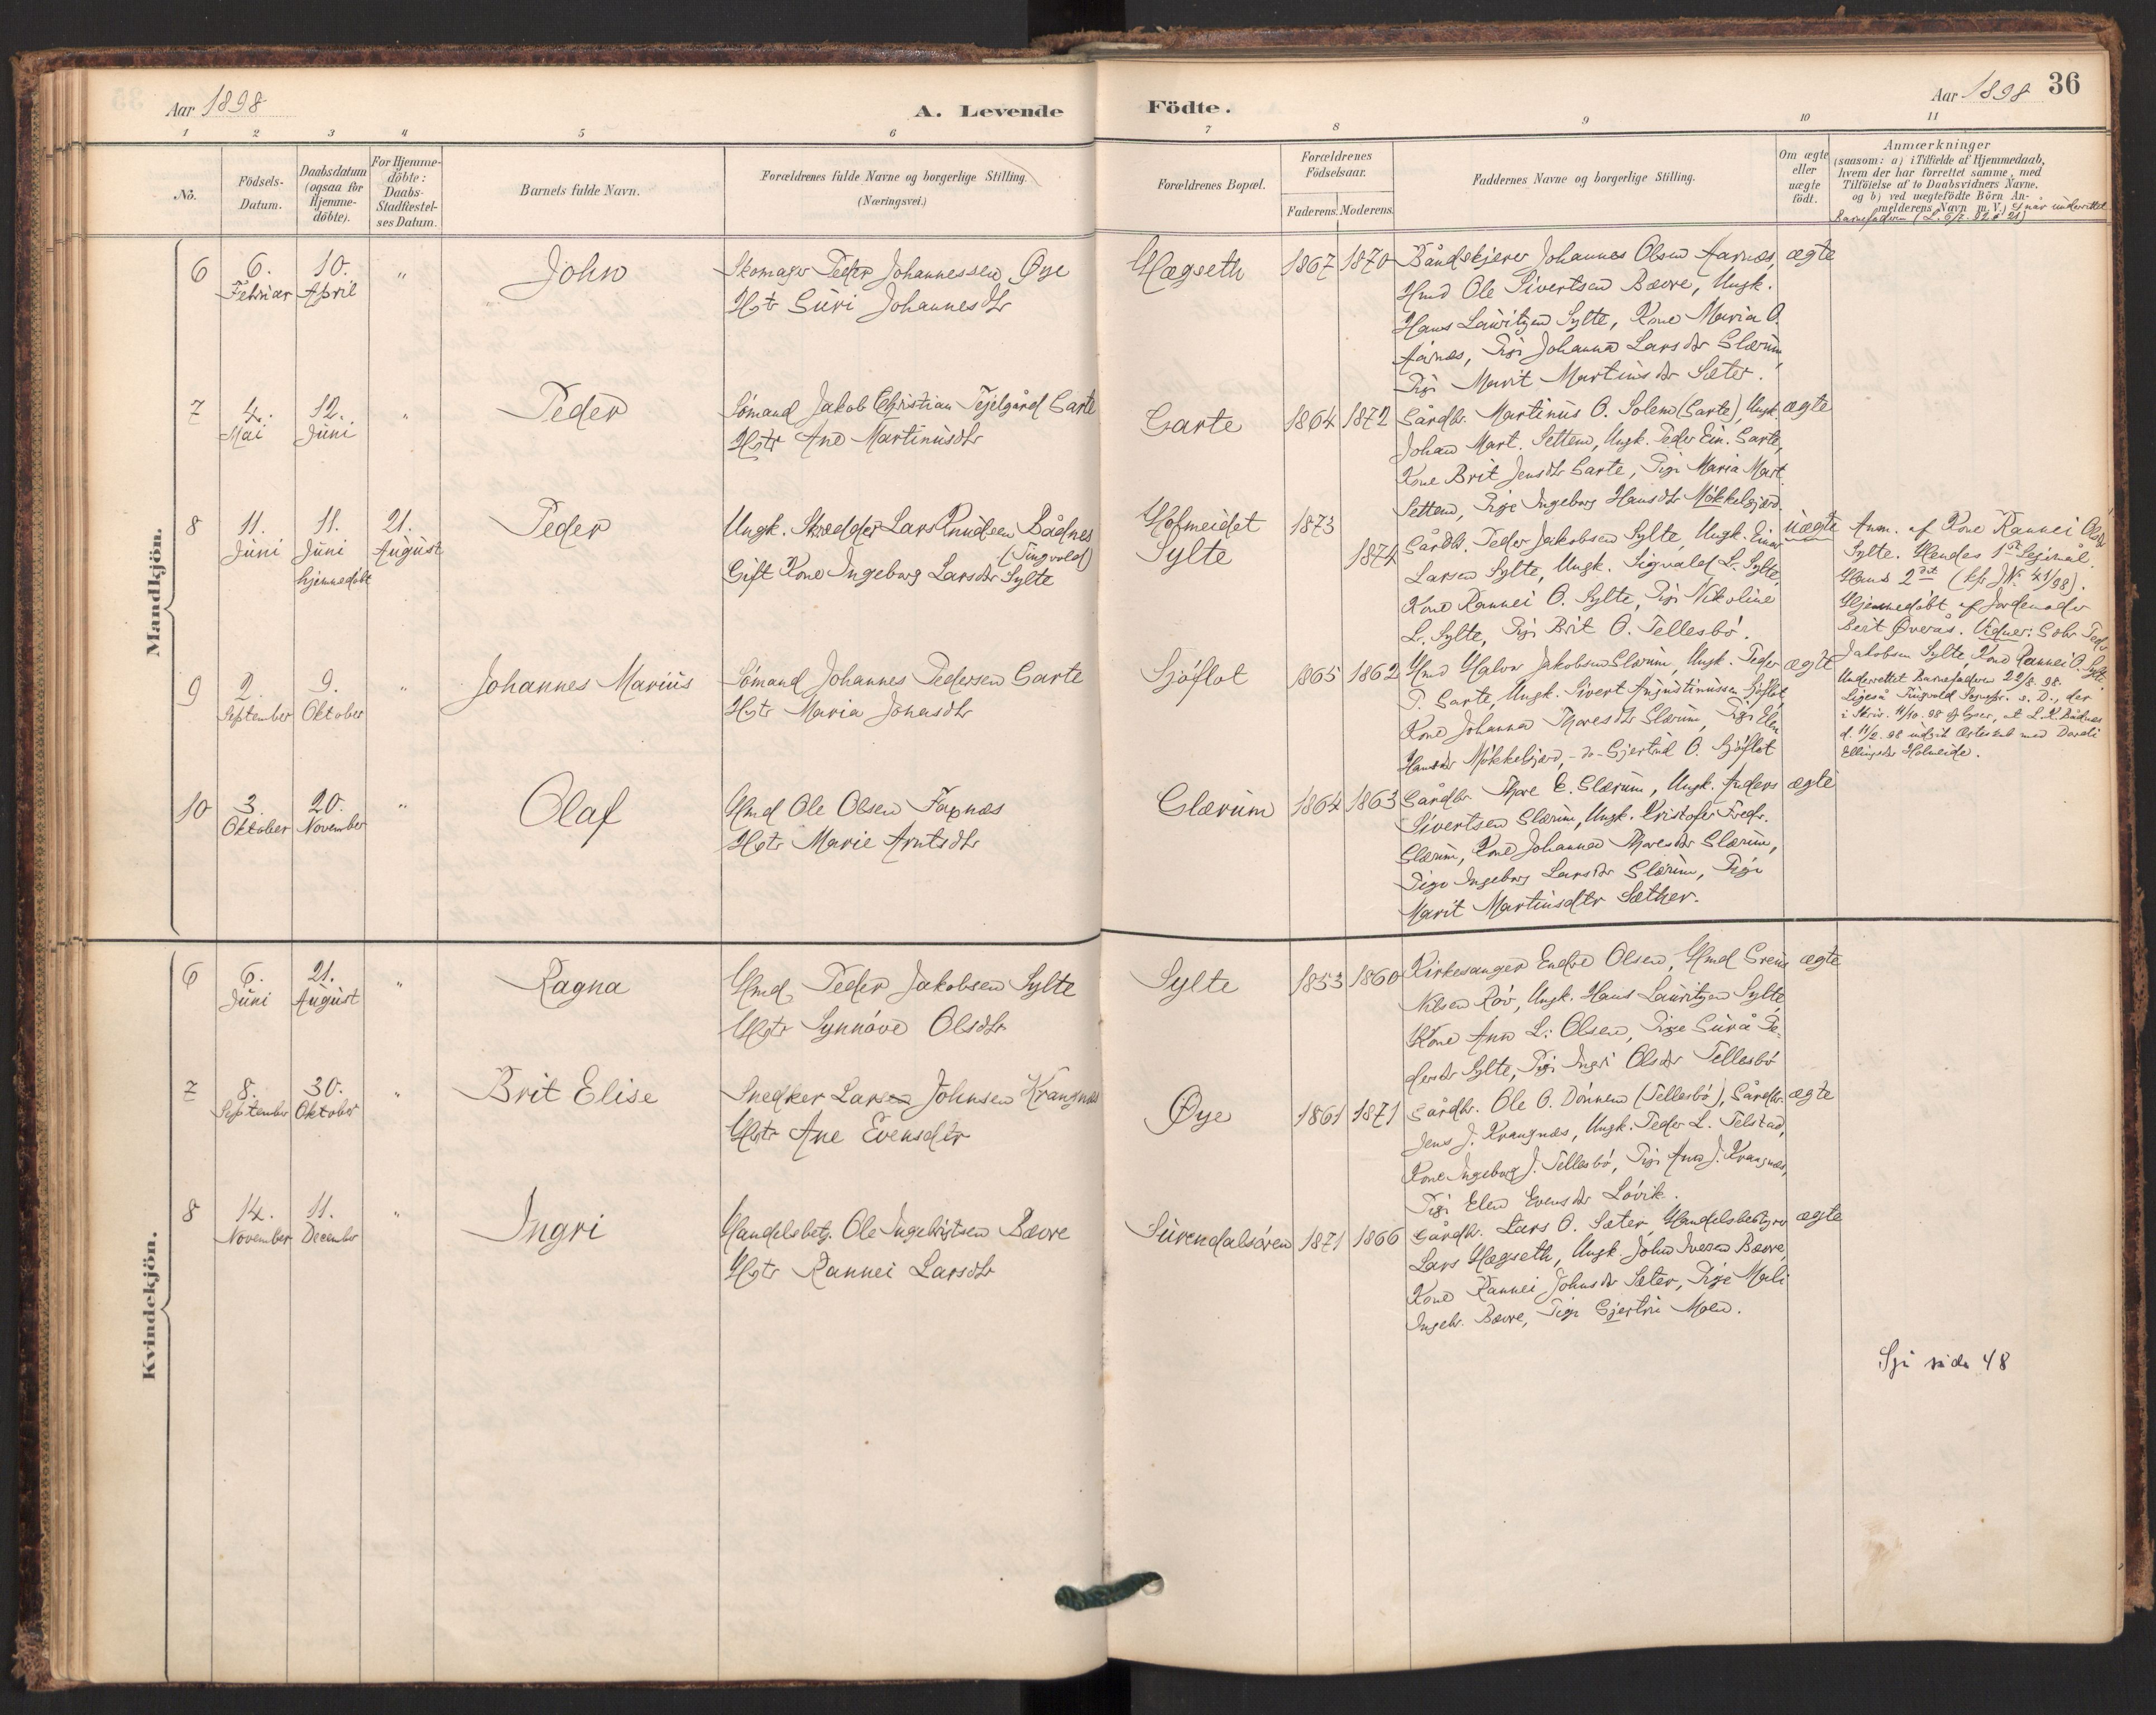 Aar 1898
A. Levende
1 2 3 4 5 6
No.
Födsels-
Datum.
Daabsdatum
(ogsaa for
Hjemme-
döbte).
For Hjemme-
döbte:
Daabs-
Stadfæstel-
ses Datum.
Barnets fulde Navn.
Forældrenes fulde Navne og borgerlige Stilling.
(Næringsvei.)
Mandkjön.
6 6. 10. " John Skomager Peder Johannessen Øye
Februar April Hstr Guri Johannesdtr
7 4. 12. " Peder Sömand Jakob Christian Garte
Mai Juni Hstr Ane Martinusdtr
8 11. 11. 21. Peder Ungk. Skrædder Lars Knudsen Bådnes
Juni Juni August (Tingvold)
hjemmedöbt Gift Kone Ingeborg Larsdtr Sylte
9 2. 9. " Johannes Marius Sömand Johannes Pedersen Garte
September Oktober Hstr Maria Jonasdtr
10 3. 20. " Olaf Hmd Ole Olsen
Oktober November Hstr Marie Arntsdtr
Kvindekjön.
6 6. 21. " Ragna Hmd. Peder Jakobsen Sylte
Juni August Hstr Synnöve Olsdtr
7 8. 30. " Brit Elise Snedker Lars Johnsen Krangnæs
September Oktober Hstr Ane Evensdtr
8 14. 11. " Ingri Handelsbetj. Ole Ingebrigtsen Bævre
November December Hstr Rannei Larsdtr
Födte.
Aar 1898 36
7 8 9 10 11
Forældrenes Bopæl.
Forældrenes
Födselsaar.
Faderens. Moderens.
Faddernes Navne og borgerlige Stilling.
Om ægte
eller
uægte
födt.
Anmærkninger
(saasom: a) i Tilfælde af Hjemmedaab,
hvem der har forrettet samme, med
Tilföielse af to Daabsvidners Navne,
og b) ved uægtefödte Börn An-
melderens Navn m. V.) når underrettet
Barnefaderen
Hægseth 1867 1870 Johannes Olsen Aarnes, ægte
Hmd Ole Sivertsen Bævre, Ungk.
Hans Lauritzen Sylte, Kone Maria O.
Årnes, Pige Johanna Larsdtr Glærum,
Pige Marit Martinusdtr Sæter.
Garte 1864 1872 Gårdbr. Martinus O. Solem (Garte) Ungk. ægte
Johan Mart. Settem, Ungk. Peder Garte,
Kone Brit Jensdtr Garte, Pige Maria Mart.
Settem, Pige Ingeborg Hansdtr Mökkelgjærd.
Hofmeidet 1873
Sylte 1874 Gårdbr. Peder Jakobsen Sylte, Ungk. Einar uægte
Larsen Sylte, Ungk. Sigvald L. Sylte,
Kone Rannei O. Sylte, Pige Nikoline
L. Sylte, Pige Brit O. Tellesbö.
Anm. af Kone Rannei Olsdtr
Sylte. Hendes 1ste Leiermål.
Hans 2det (kfr J№ 41/98).
Hjemmedöbt af Jordemoder
Berit Øverås. Vidner: Gdbr Peder
Jakobsen Sylte, Kone Rannei O. Sylte.
Underrettet Barnefaderen 22/8. 98.
Ligeså Tingvold Sognepr. s. D., der
i Skriv. 11/10. 98 oplyser, at L. K. Bådnes
Ellingsdtr Holmeide.
Sjöflot 1865 1862 Hmd Halvor Jakobsen Glærum, Ungk. Peder ægte
P. Garte, Ungk. Sivert Augustinussen Sjöflot,
Kone Johanna Thoresdtr Glærum, Pige Elen
Hansdtr Mökkelgjærd, -do- Gjertrud O. Sjöflot
Glærum 1864 1863 Gårdbr Thore E. Glærum, Ungk. Anders ægte
Sivertsen Glærum, Ungk. Kristofer Fredr.
Glærum, Kone Johanna Thoresdtr Glærum,
Pige Ingeborg Larsdtr Glærum, Pige
Marit Martinusdtr Sæther.
Sylte 1853 1860 Kirkesanger Endre Olsen, Hmd ægte
Nilsen Röv, Ungk. Hans Lauritzen Sylte,
Kone Ane L. Olsen, Pige Gurå Pe-
dersdr Sylte, Pige Ingri Olsdtr Tellesbö
Øye 1861 1871 Gårdbr. Ole O. Dönnem (Tellesbö), Gårdbr. ægte
Jens J. Krangnæs, Ungk. Peder L. Telstad,
Kone Ingeborg J. Tellesbö, Pige Ane J. Krangnæs,
Pige Elen Evensdtr Lövik.
Surendalsören 1871 1866 Gårdbr. Lars O. Sæter, Handelsbestyrer ægte
Lars Hægseth, Ungk. John Iversen Bævre,
Kone Rannei Johnsdtr Sæter, Pige Mali
Ingebr. Bævre, Pige Gjertru Moen.
Sjå side 48